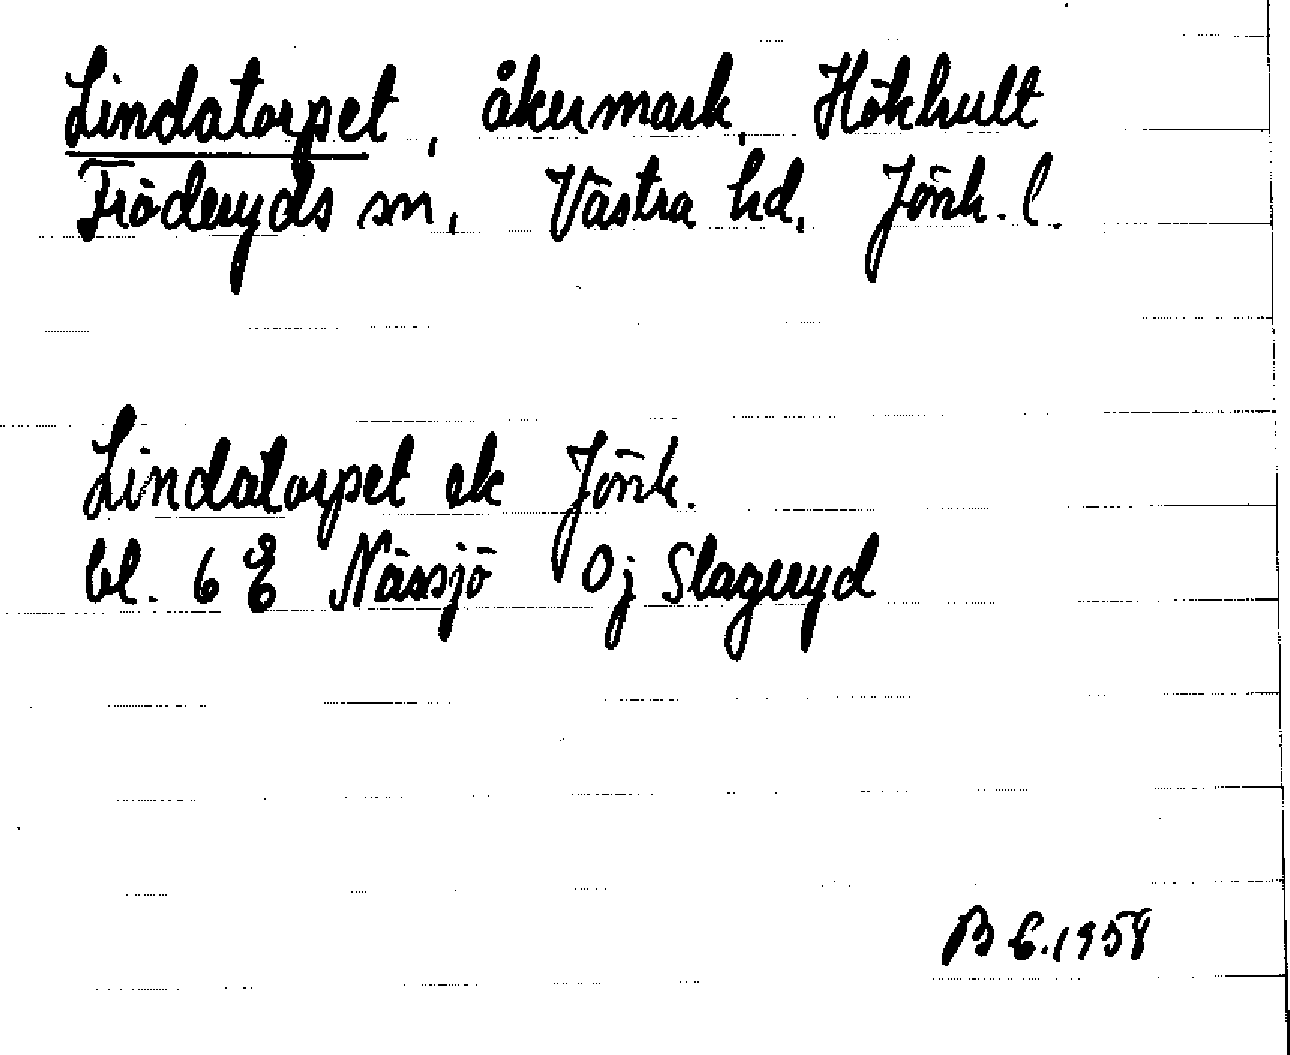 Lindatorpet, åkermark, Hökhult
Fröderyds sn, Västra hd, Jönk. l.
Lindatorpet ek Jönk.
bl. 6 E Nässjö Oj Slageryd
B E. 1958